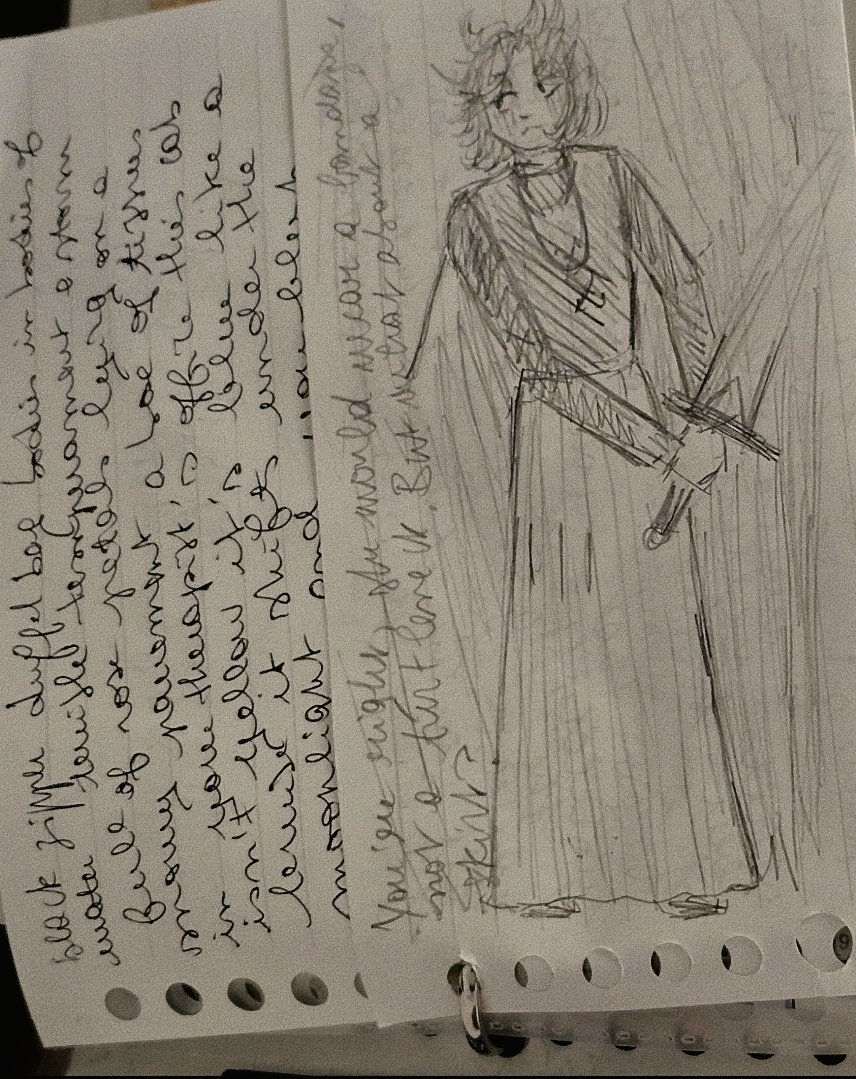 black zipper duffel bag bodies in bodies of
water terrible temperament a storm
full of rose petals lying on a
snowy pavement a box of tissues
in your therapist's office this cat
isn't yellow it's blue like a
bruise it shifts under the
moonlight and you
You're right, she would wear a bandana,
not a turtleneck. But what about a
skirt?